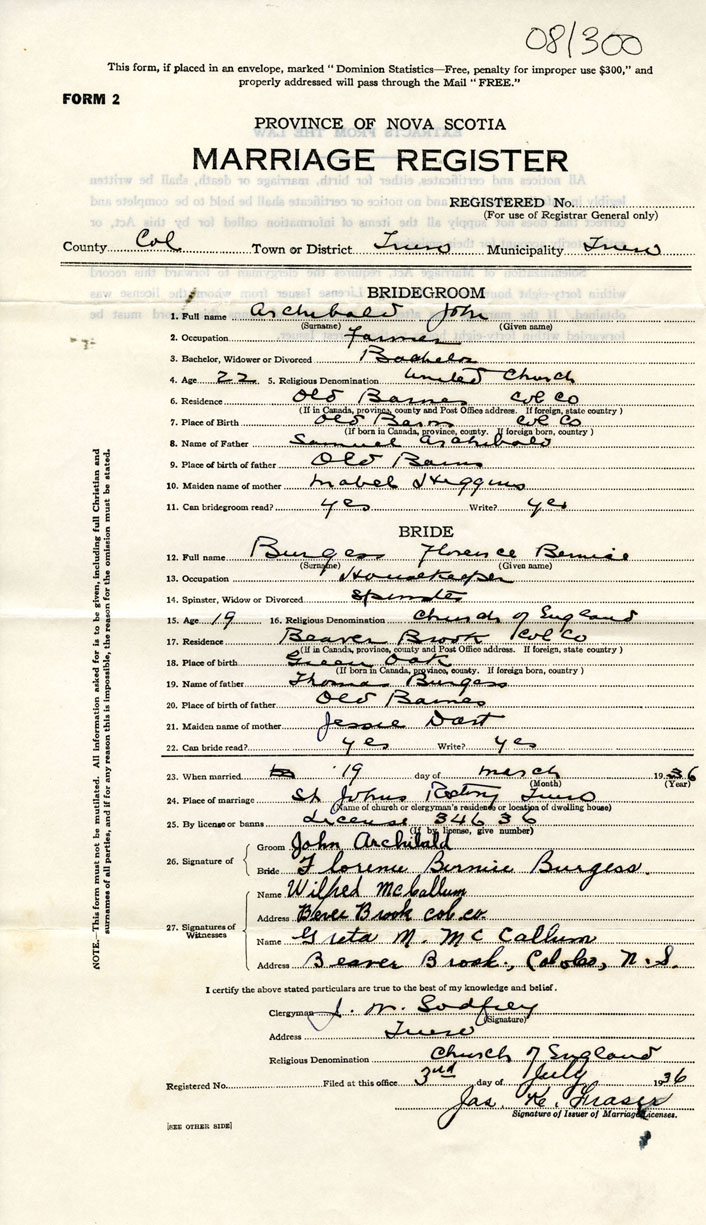 08/300
This form, if placed in an envelope, marked "Dominion Statistics—Free, penalty for improper use $300," and
properly addressed will pass through the Mail "FREE."
FORM 2
PROVINCE OF NOVA SCOTIA
MARRIAGE REGISTER
REGISTERED No.
(For use of Registrar General only)
County Col Town or District Truro Municipality Truro
BRIDEGROOM
1. Full name Archibald John
(Surname) (Given name)
2. Occupation Farmer
3. Bachelor, Widower or Divorced Bachelor
4. Age 22 5. Religious Denomination United Church
6. Residence Old Barnes Col Co
(If in Canada, province, county and Post Office address. If foreign, state country)
7. Place of Birth Old Barns Col Co
(If born in Canada, province, county. If foreign born, country)
8. Name of Father Samuel Archibald
9. Place of birth of father Old Barns
10. Maiden name of mother Mabel Higgins
11. Can bridegroom read? yes Write? yes
BRIDE
12. Full name Burgess Florence Bernice
(Surname) (Given name)
13. Occupation Housekeeper
14. Spinster, Widow or Divorced Spinster
15. Age 19 16. Religious Denomination Church of England
17. Residence Beaver Brook Col Co
(If in Canada, province, county and Post Office address. If foreign, state country)
18. Place of birth Green Oak
(If born in Canada, province, county. If foreign born, country)
19. Name of father Thomas Burgess
20. Place of birth of father Old Barnes
21. Maiden name of mother Jessie Dart
22. Can bride read? yes Write? yes
23. When married 19 day of March 1936
(Month) (Year)
24. Place of marriage St Johns Truro
(Name of church or clergyman's residence or location of dwelling house)
25. By license or banns License 34636
(If by license, give number)
26. Signature of Groom John Archibald
Bride Florence Bernice Burgess.
27. Signatures of Witnesses Name Wilfred McCallum
Address Bever Brook col. co.
Name Greta M. McCallum
Address Beaver Brook., N.S.
I certify the above stated particulars are true to the best of my knowledge and belief.
Clergyman J. W. Godfrey
(Signature)
Address Truro
Religious Denomination Church of England
Registered No. Filed at this office 3rd day of July 1936
Jas. K. Fraser
Signature of Issuer of Marriage Licenses.
[SEE OTHER SIDE]
NOTE.—This form must not be mutilated. All information asked for is to be given, including full Christian and
surnames of all parties, and if for any reason this is impossible, the reason for the omission must be stated.